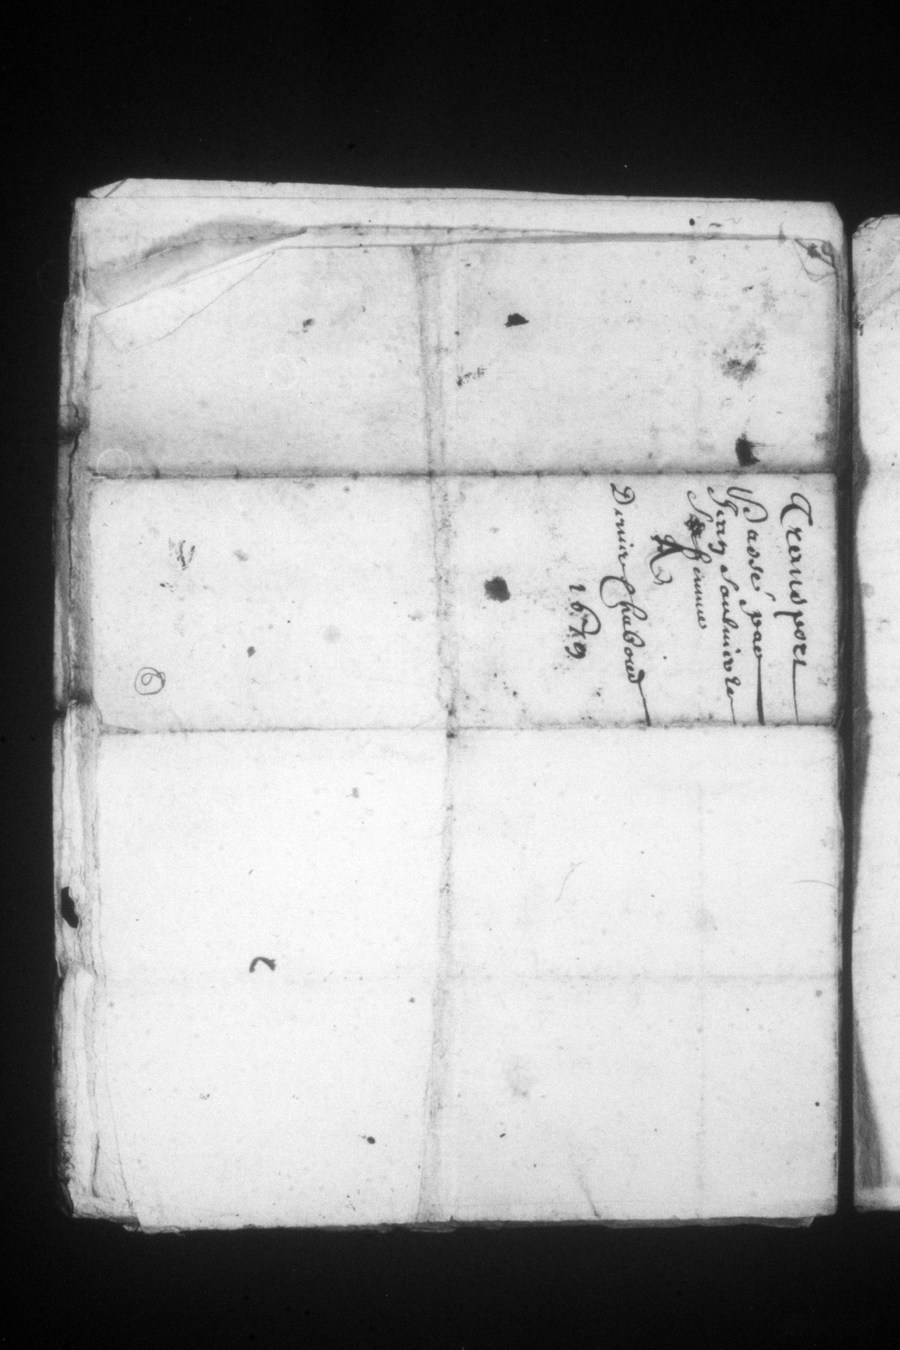 Transport
Passé par
Jean Saulnier et
Sa femme
A
Denier Chaboud
1679
6